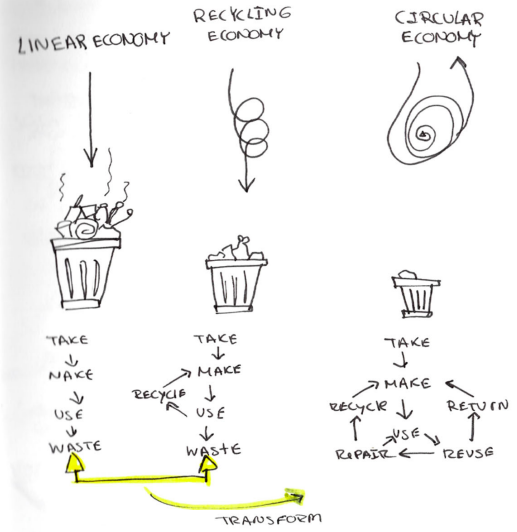 LINEAR ECONOMY
TAKE
NAKE
USE
WASTE
RECYCLING
ECONOMY
TAKE
MAKE
RECYCLE
USE
WASTE
CIRCULAR
ECONOMY
TAKE
MAKE
RECYCLE
RETURN
USE
REPAIR
REUSE
TRANSFORM